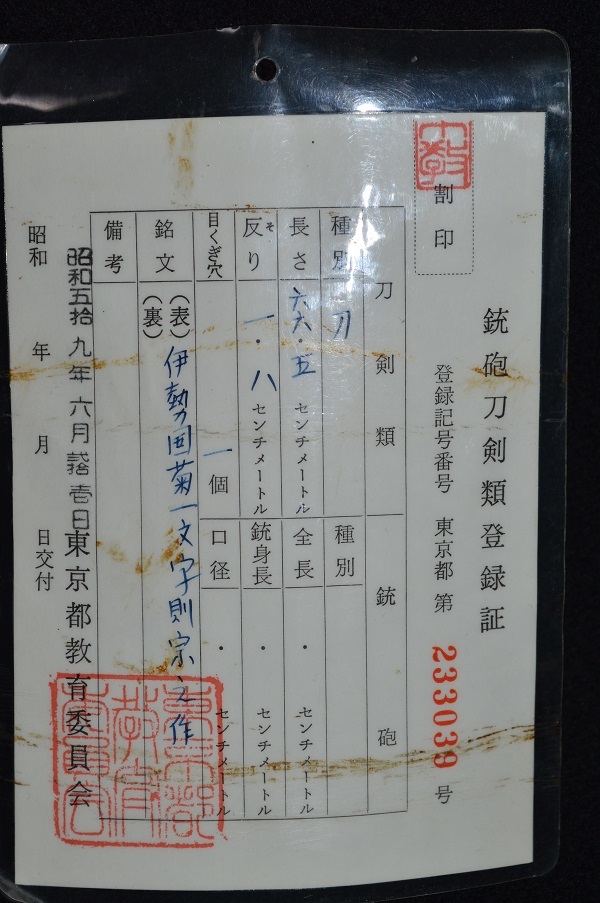 銃砲刀剣類登録証
割印
登録記号番号 東京都 第 233039 号
刀剣類 銃砲
種別 刀 種別
長さ 六六・五 センチメートル 全長 ・ センチメートル
反り そ 一・八 センチメートル 銃身長 ・ センチメートル
目くぎ穴 一個 口径 ・ センチメートル
銘文 (表) 伊勢国菊一文字則宗之作
(裏)
備考
昭和五拾九年六月 壱日 東京都教育委員会
昭和 年 月 日交付